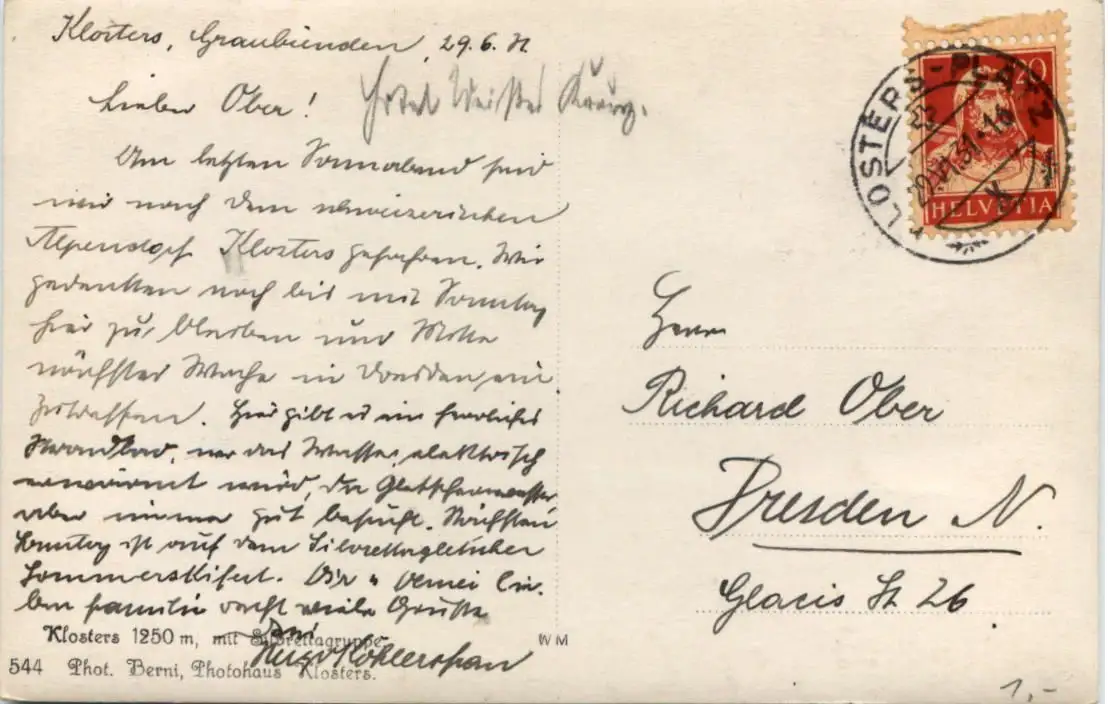 Klosters, Graubünden, 29.6.31
Hotel Weißes Kreuz.
Lieber Ober!
Am letzten Sonnabend sind
wir nach dem schweizerischen
Alpendorf Klosters gefahren. Wir
gedenken noch bis mit Sonntag
hier zu bleiben und Mitte
nächster Woche in Dresden ein
zutreffen. Hier gibt es ein herrliches
Strandbad, wo das Wasser elektrisch
erwärmt wird, da Gletscherwasser
aber immer gut besucht. Nächsten
Sonntag ist auf dem Silvrettagletscher
Sommerskifest. Dir u Deiner lie-
ben Familie recht viele Grüße
Dein
Hugo Köhler
Klosters 1250 m, mit Silvrettagruppe
WM
544 Phot. Berni, Photohaus Klosters.
20
HELVETIA
KLOSTERS-PLATZ
29.VI.31-16
Herrn
Richard Ober
Dresden N.
Glacis St 26
1,-